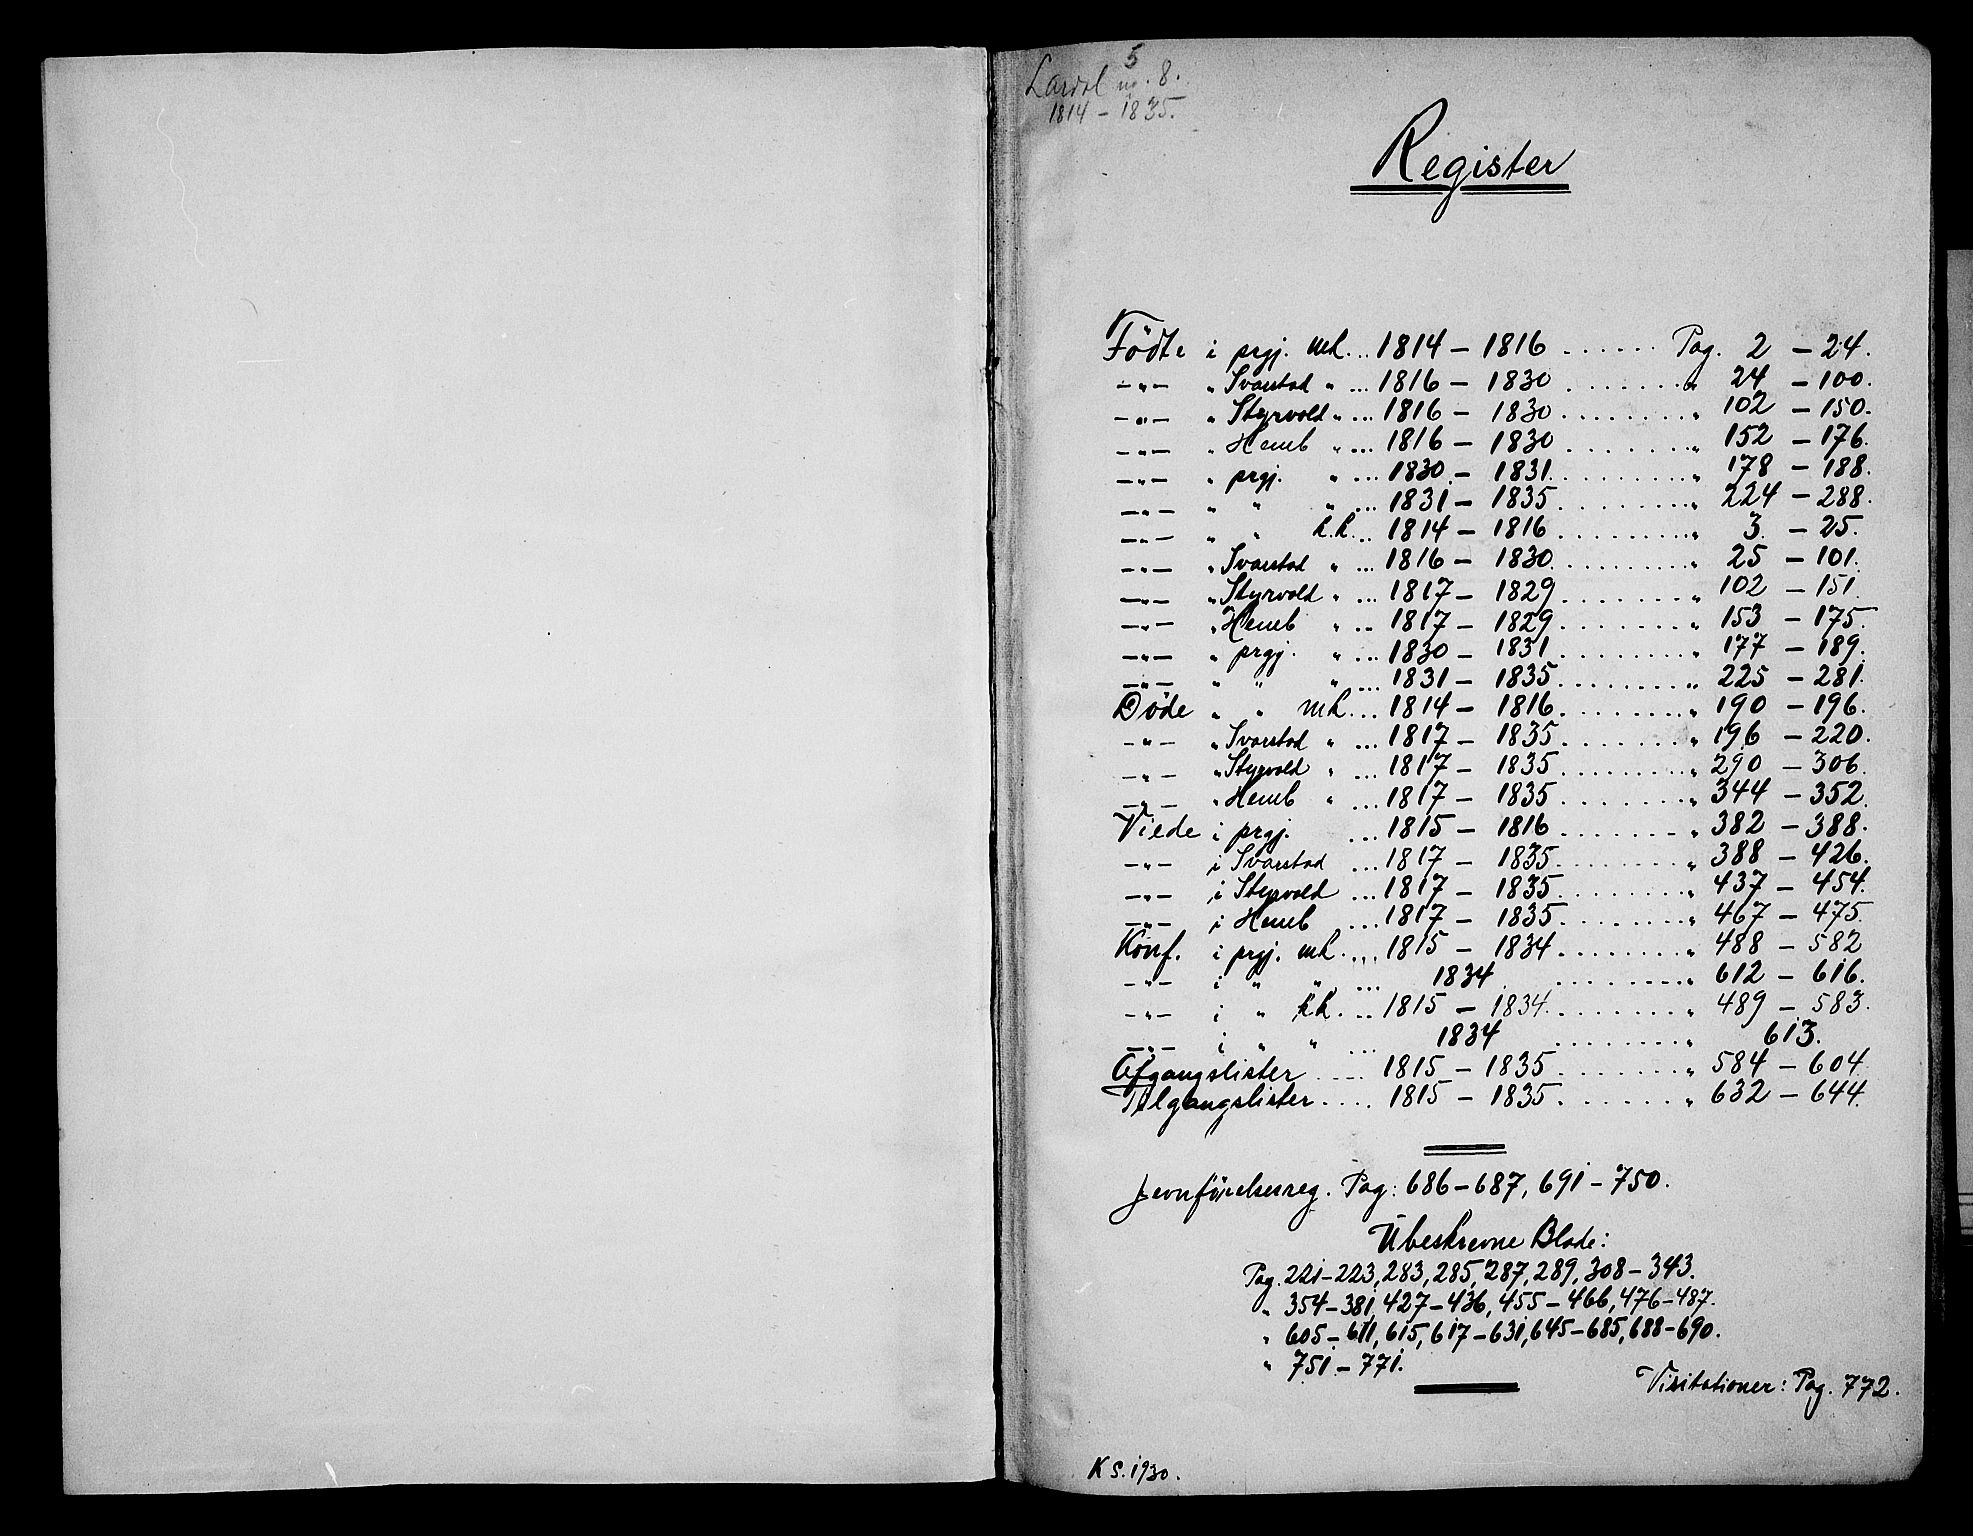 5
Lardal no. 8.
1814 - 1835.
Register
Födte i prgj. mk... 1814 - 1816 ...... Pag. 2 - 24.
-"- " Svarstad " ... 1816 - 1830 ....... " 24 - 100.
-"- " Styrvold " ... 1816 - 1830 ....... " 102 - 150.
-"- " Hemb " ... 1816 - 1830 ....... " 152 - 176.
-"- " prgj. " ... 1830 - 1831 ....... " 178 - 188.
-"- " " " ... 1831 - 1835 ....... " 224 - 288.
-"- " " k.k. ... 1814 - 1816 ....... " 3 - 25.
-"- " Svarstad " ... 1816 - 1830 ....... " 25 - 101.
-"- " Styrvold " ... 1817 - 1829 ....... " 102 - 151.
-"- " Hemb " ... 1817 - 1829 ....... " 153 - 175.
-"- " prgj. " ... 1830 - 1831 ....... " 177 - 189.
-"- " " " ... 1831 - 1835 ....... " 225 - 281.
Döde " " mk... 1814 - 1816 ....... " 190 - 196.
-"- " Svarstad " ... 1817 - 1835 ....... " 196 - 220.
-"- " Styrvold " ... 1817 - 1835 ....... " 290 - 306.
-"- " Hemb " ... 1817 - 1835 ....... " 344 - 352.
Viede i prgj. ... 1815 - 1816 ....... " 382 - 388.
-"- i Svarstad ... 1817 - 1835 ....... " 388 - 426.
-"- i Styrvold ... 1817 - 1835 ....... " 437 - 454.
-"- i Hemb ... 1817 - 1835 ....... " 467 - 475.
Konf. i prgj. mk. ... 1815 - 1834 ....... " 488 - 582
-"- i " " ... 1834 ....... " 612 - 616.
-"- i " kk. ... 1815 - 1834 ....... " 489 - 583.
-"- i " " ... 1834 ....... " 613.
Afgangslister .... 1815 - 1835 ....... " 584 - 604.
Tilgangslister .... 1815 - 1835 ....... " 632 - 644.
Jevnförelsesreg. Pag: 686-687, 691-750.
Ubeskrevne Blade:
Pag. 221-223, 283, 285, 287, 289, 308-343.
" 354-381, 427-436, 455-466, 476-487.
" 605-611, 615, 617-631, 645-685, 688-690.
" 751-771.
Visitationer: Pag. 772.
K S. 1930.